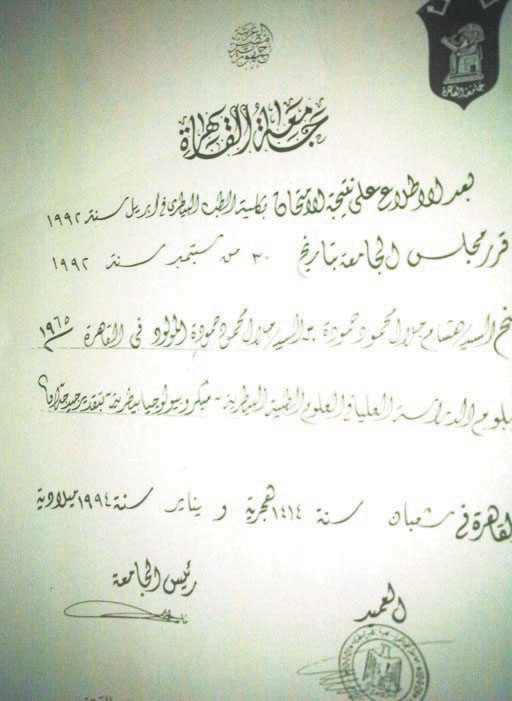 جمهورية
مصر
العربية
جامعة القاهرة
جامعة القاهرة
بعد الاطلاع على نتيجة الامتحان بكلية الطب البيطري في ابريل سنة ١٩٩٢
قرر مجلس الجامعة بتاريخ ٣٠ من سبتمبر سنة ١٩٩٢
نح السيد / هشام جلال محمود حمودة بن السيد / جلال محمود حمودة المولود في القاهرة سنة ١٩٦٥
بلوم الدراسة العليا في العلوم الطبية البيطرية - ميكروبيولوجيا بيطرية بتقدير جيد جدا
لقاهرة في شعبان سنة ١٤١٤ هجرية و يناير سنة ١٩٩٤ ميلادية
رئيس الجامعة
العميد